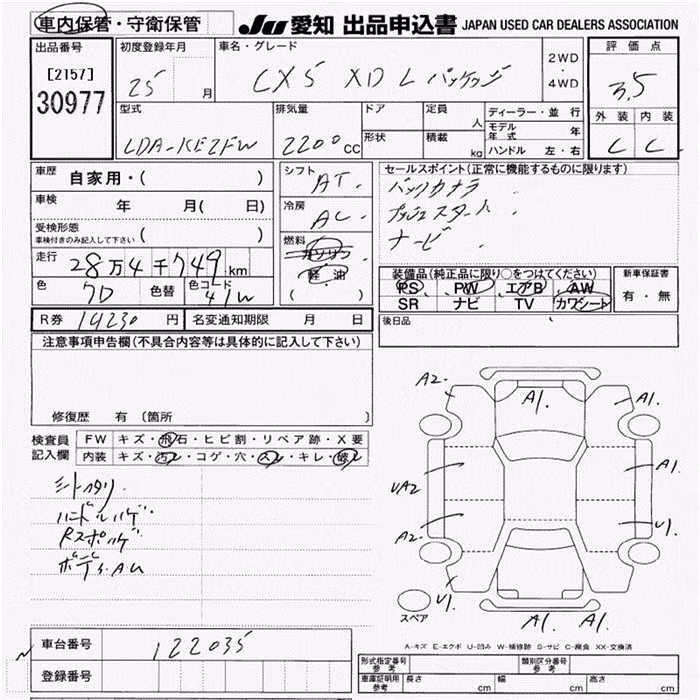 車内保管・守衛保管 JU 愛知 出品申込書 JAPAN USED CAR DEALERS ASSOCIATION
出品番号 初度登録年月 車名・グレード 評価点
[2157] 25 月 CX5 XD L パッケージ 2WD・4WD 3.5
30977
型式 排気量 ドア 定員 人 ディーラー・並行 外装 内装
LDA-KE2FW 2200 CC 形状 積載 kg モデル年式 年 C C
ハンドル 左・右
車歴 自家用・( ) シフト AT. セールスポイント(正常に機能するものに限ります)
車検 年 月( 日) 冷房 AC. バックカメラ
受検形態 プッシュスタート
車検付きのみ記入して下さい ( ) 燃料 ガソリン ナビ
走行 28万4千749km 軽油 装備品(純正品に限り○をつけてください) 新車保証書
色 色替 色コード 41W ( ) PS PW エアB AW 有・無
SR ナビ TV カワシート
R券 14230 円 名変通知期限 月 日 後日品
注意事項申告欄(不具合内容等は具体的に記入して下さい)
修復歴 有 〔箇所 〕
検査員記入欄 FW キズ・飛石・ヒビ割・リペア跡・X要
内装 キズ・汚レ・コゲ・穴・スレ・キレ・破レ
シートヘタリ
ハンドルハゲ
Rスポハゲ
ボデーS.AU
A2. A1. A1.
UA2 A1.
A2. U1.
U1. A1. A1.
スペア
A-キズ E-エクボ U-凹み W-補修跡 S-サビ C-腐食 XX-交換済
車台番号 122035
登録番号
型式指定番号 参考 類別区分番号 参考
車庫証明用 参考 長さ cm 幅 cm 高さ cm